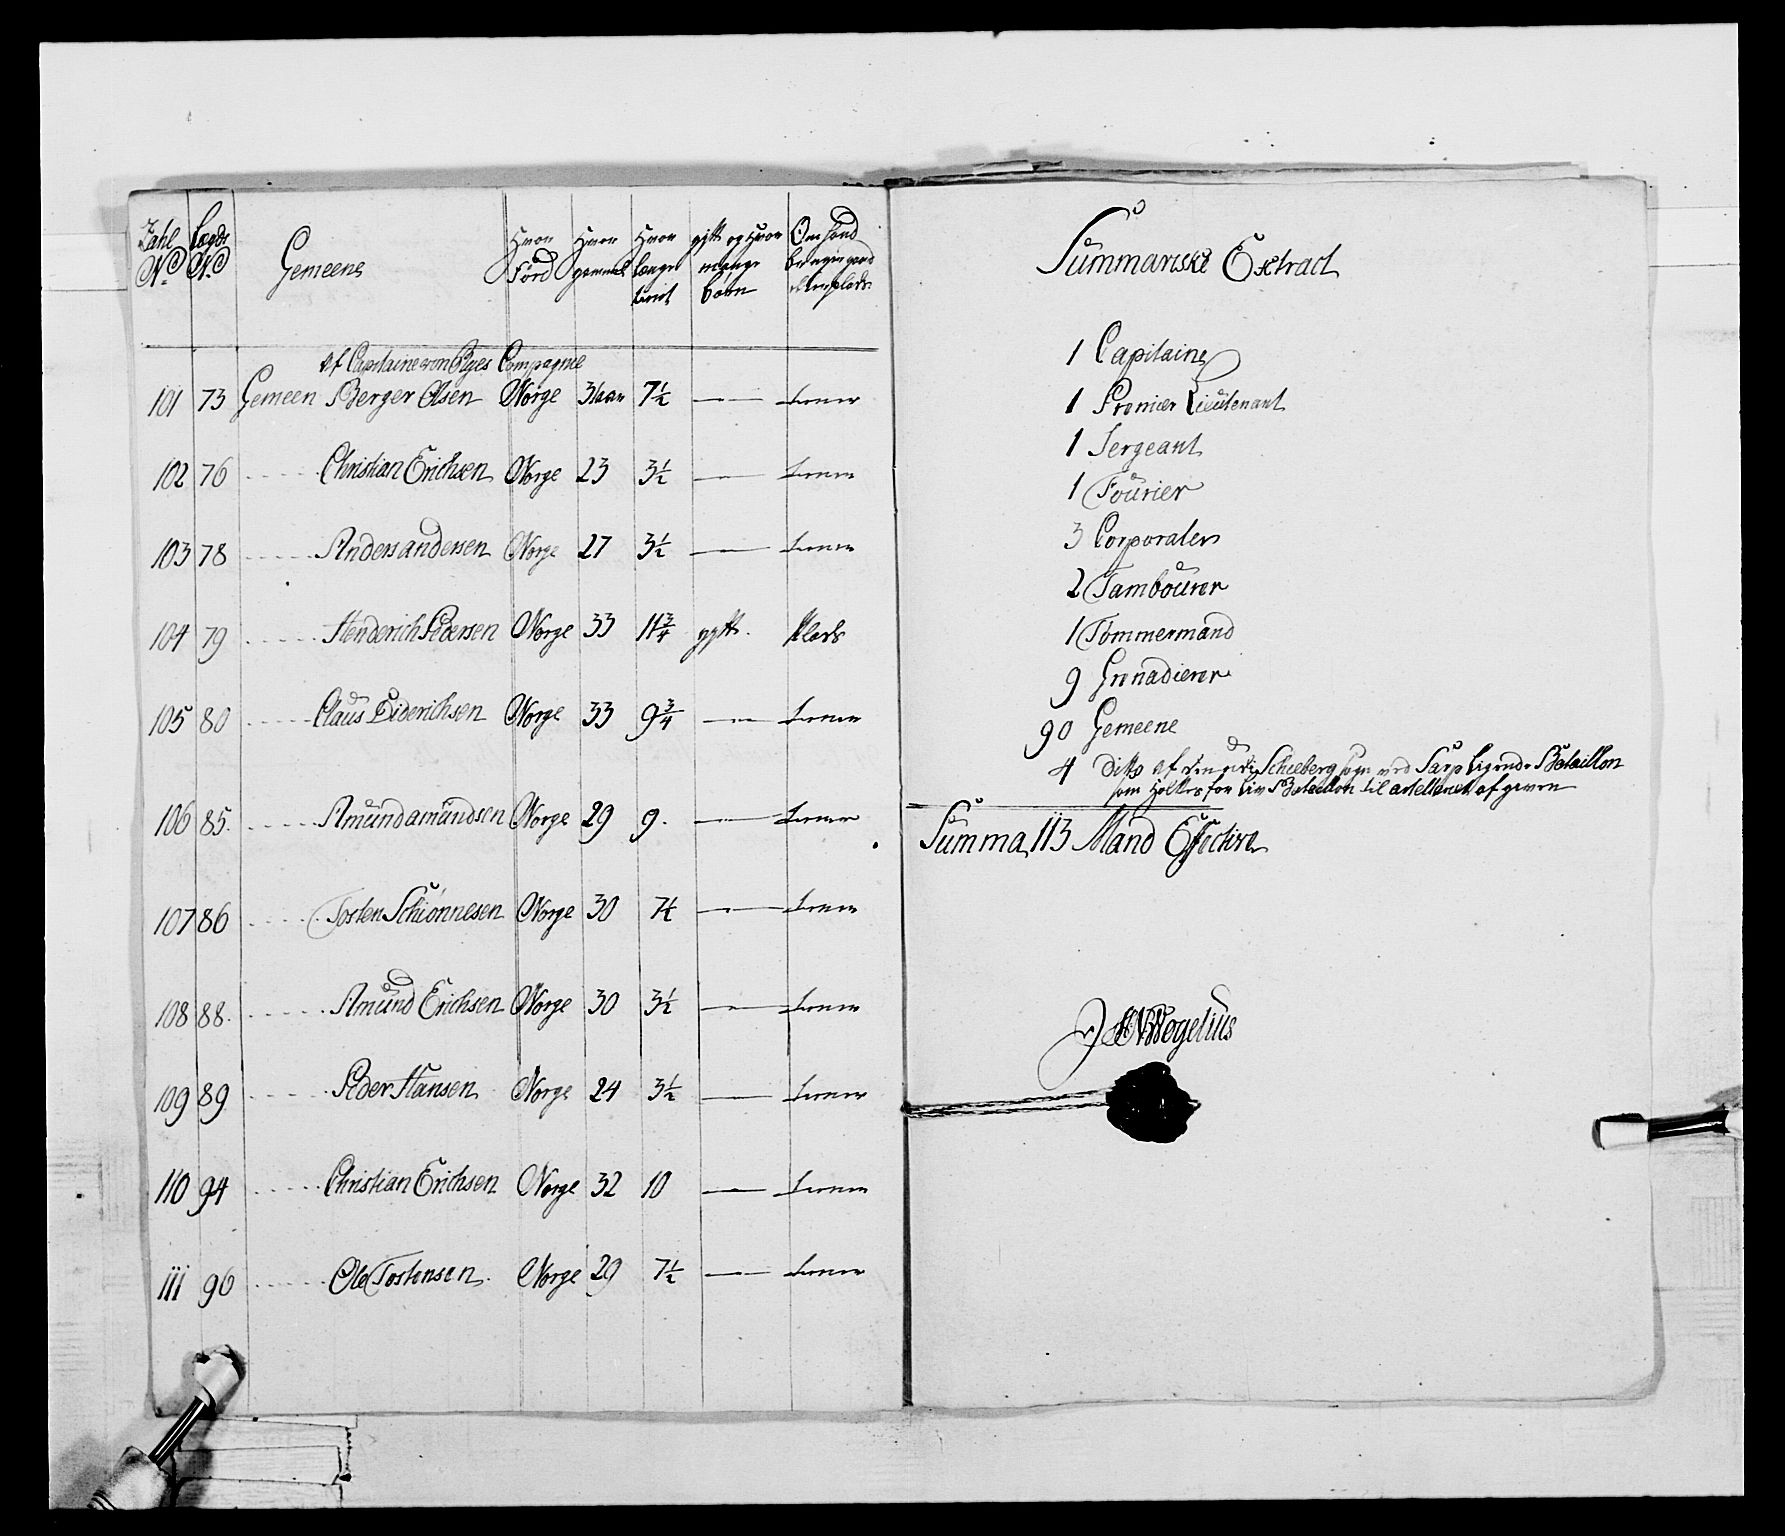 Zahl No | Lægds No | Gemeene | Hvor Förd | Hvor gammel | Hvor længe tient | gift og Hvor mange börn | Om hand
af Capitaine von Ryes Compagnie
101 73 Gemeen Berger Olsen Norge 31 aar 7½ —
102 76 Christian Erichsen Norge 23 3½ —
103 78 Anders andersen Norge 27 3½ —
104 79 Henderich Pedersen Norge 33 11¾ gift. Plads
105 80 Claus Diderichsen Norge 33 9¾ —
106 85. Amund amundsen Norge 29 9. —
107 86 Tosten Schiönnesen Norge 30 7¼ —
108 88. Amund Erichsen Norge 30 3½ —
109 89 Peder Hansen Norge 24 3½ —
110 94 Christian Erichsen Norge 32 10 —
111 96 Ole Tostensen. Norge 29 7½ —
Summariske Extract
1 Capitaine
1 Premier Lieutenant
1 Sergeant
1 Fourier
3 Corporaler
2 Tambourer
1 Tömmermand
9 Grenadierer
90 Gemeene
4 Ditto af den ved Sarp ligende Bataillon
som for Liv Bataillon til afgiven
Summa 113 Mand Effective
Wegelius